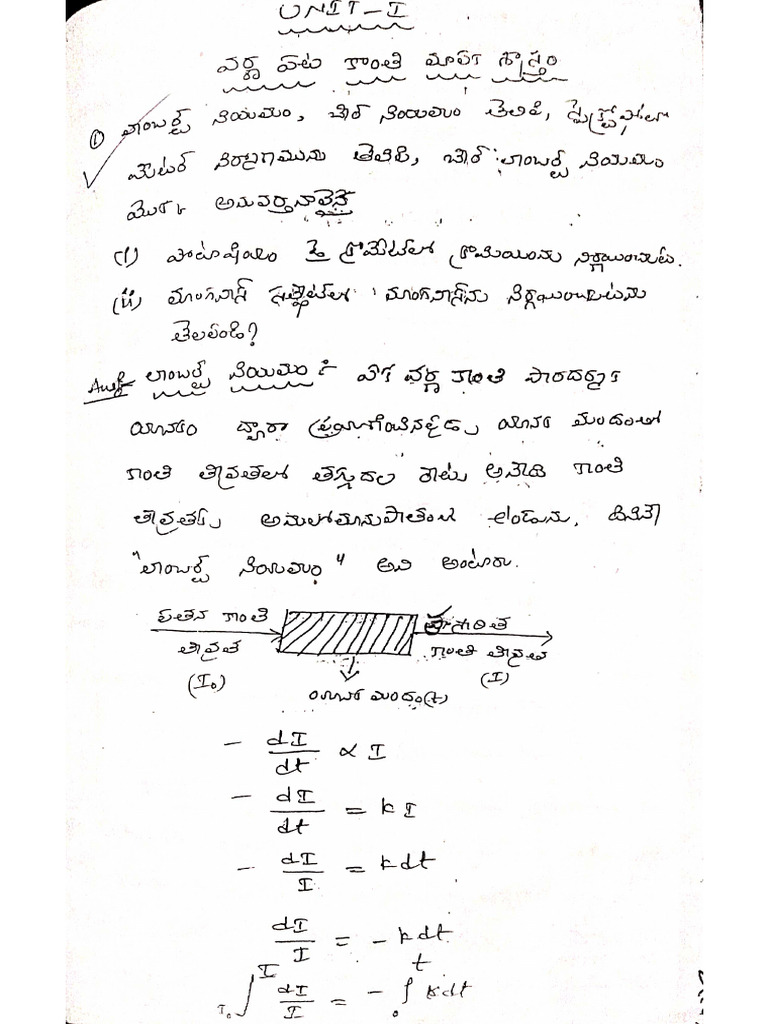 UNIT-I
వర్ణ పట కాంతి మాపక శాస్త్రం
① లాంబర్ట్ నియమం, బీర్ నియమం తెలిపి, స్పెక్ట్రోఫోటో
మీటర్ నిర్మాణమును తెలిపి, బీర్ లాంబర్ట్ నియమం
మొక్క అనువర్తనాలైన
(i) పొటాషియం డై క్రోమేట్‌లో క్రోమియంను నిర్ణయించుట.
(ii) మాంగనీస్ సల్ఫేట్‌లో మాంగనీస్‌ను నిర్ణయించుటను
తెలపండి?
Ans:- లాంబర్ట్ నియమం :- ఏక వర్ణ కాంతి పారదర్శక
యానకం ద్వారా ప్రయాణించినప్పుడు యానక మందంతో
కాంతి తీవ్రతలో తగ్గుదల రేటు అనేది కాంతి
తీవ్రతకు అనులోమానుపాతంలో ఉండును. దీనినే
"లాంబర్ట్ నియమం" అని అంటారు.
పతన కాంతి
తీవ్రత
(I₀)
ప్రసారిత
కాంతి తీవ్రత
(I)
మందం(t)
- dI/dt ∝ I
- dI/dt = k I
- dI/I = k dt
dI/I = - k dt
∫_{I₀}^{I} dI/I = - ∫_{0}^{t} k dt